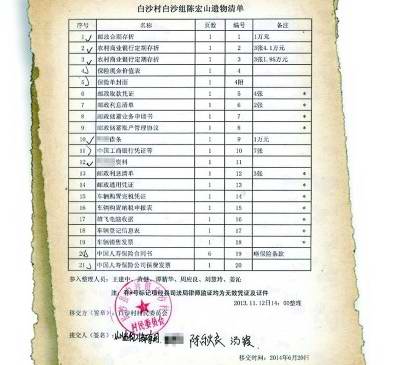 白沙村白沙组陈宏山遗物清单
序号 名称 页数 编号 备注
1 邮政定期存折 1 1 1万元
2 农村商业银行定期存折 1 2 3张4.1万元
3 农村商业银行定期存折 1 3 3张1.95万元
4 保险现金价值表 1 4
5 保险单封面 1 4附
6 邮政取款凭证 1 5 4张 *
7 邮政利息清单 1 6 2张 *
8 邮政储蓄业务申请书 1 7 *
9 邮政储蓄账户管理协议 1 8 *
10 借条 1 9 1万元
11 中国工商银行凭证等 1 10 7张
12 资料 1 11
13 邮政利息清单 1 12 3张 *
14 邮政通用凭证 1 13 *
15 车辆购置完税凭证 1 14 *
16 车辆购置纳税申报表 1 15 *
17 腾飞电脑收据 1 16 *
18 车辆登记信息表 1 17 *
19 车辆销售发票 1 18 *
20 中国人寿保险合同书 6 19 略保险条款
21 中国人寿保险公司保费发票 1 20
参入整理人：王建中、黄健、谭精华、周应良、刘慧玲、姜沁
注：有*号标记项经县司法局律师鉴证均为无效凭证及证件
2013.11.12日14：00整理
移交方（签章）：白沙村村民委员会
村民委员会
接交人（签名）： 陈欣庆
移交时间：2014年6月20日